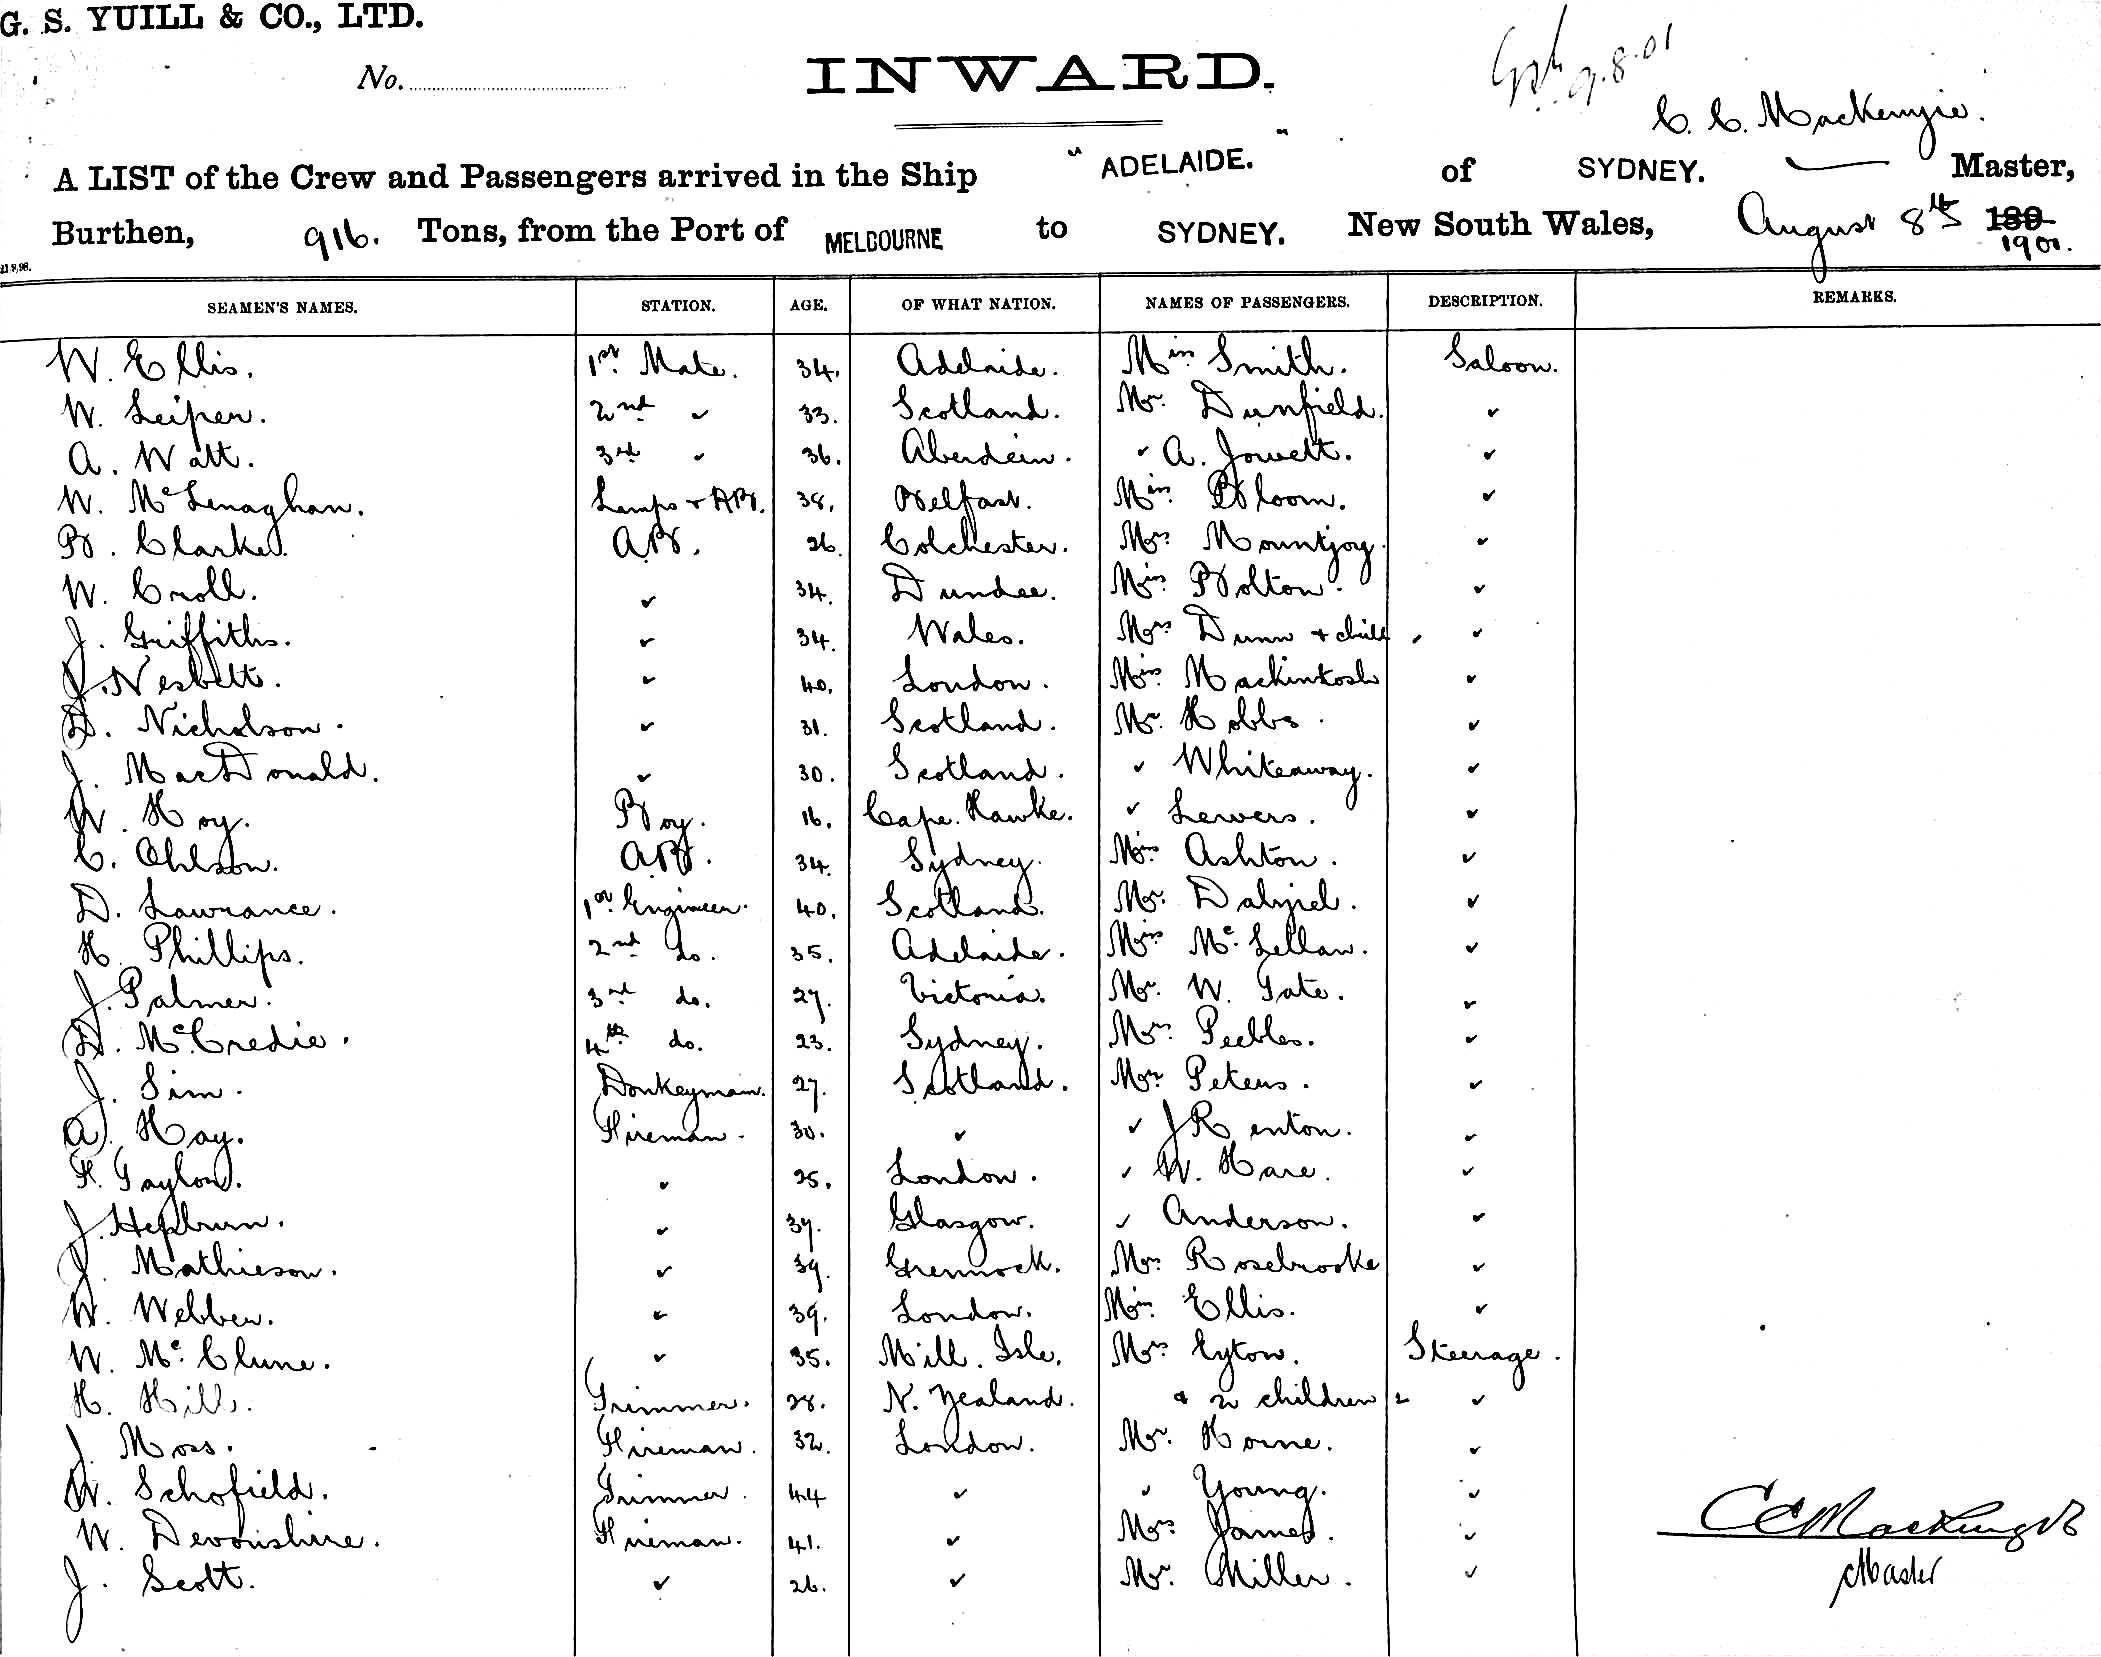 G. S. YUILL & CO., LTD.
No.
INWARD.
9.8.01
C. C. MacKenzie.
A LIST of the Crew and Passengers arrived in the Ship " ADELAIDE. " of SYDNEY. Master,
Burthen, 916. Tons, from the Port of MELBOURNE to SYDNEY. New South Wales, August 8th 189 1901.
21.9.98.
SEAMEN'S NAMES. STATION. AGE. OF WHAT NATION. NAMES OF PASSENGERS. DESCRIPTION. REMARKS.
W. Ellis. 1st Mate. 34. Adelaide. Miss Smith. Saloon.
W. Leiper. 2nd ✓ 33. Scotland. Mr. Dunfield. ✓
A. Watt. 3rd ✓ 36. Aberdein. ✓ A. Jowett. ✓
W. McLenaghan. Lamps & AB. 38. Belfast. Miss Bloom. ✓
B. Clarke. AB. 26. Colchester. Mrs Mountjoy. ✓
W. Croll. ✓ 34. Dundee. Miss Bolton. ✓
J. Griffiths. ✓ 34. Wales. Mrs Dunn & child ✓
J. Nesbett. ✓ 40. London. Miss Mackintosh ✓
D. Nicholson. ✓ 31. Scotland. Mr. Hobbs. ✓
J. MacDonald. ✓ 30. Scotland. ✓ Whiteaway. ✓
W. Hoy. Boy. 16. Cape. Hawke. ✓ Lewers. ✓
C. Ohlson. AB. 34. Sydney. Miss Ashton. ✓
D. Lawrance. 1st Engineer. 40. Scotland. Mr. Dalziel. ✓
H. Phillips. 2nd do. 35. Adelaide. Miss McLellan. ✓
J. Palmer. 3rd do. 27. Victoria. Mr. W. Tate. ✓
D. McCredie. 4th do. 23. Sydney. Mrs Peebles. ✓
J. Sim. Donkeyman. 27. Scotland. Mr Peters. ✓
A. Hay. Fireman. 30. ✓ ✓ J Renton. ✓
F. Taylor. ✓ 25. London. ✓ W. Hare. ✓
J. Hepburn. ✓ 39. Glasgow. ✓ Anderson. ✓
J. Mathieson. ✓ 39. Greenock. Mrs. Rosebrooke ✓
W. Webber. ✓ 39. London. Miss Ellis. ✓
W. McClune. ✓ 35. Mill. Isle. Mrs Eyton. Steerage.
H. Hill. Trimmer. 28. N. Zealand. & 2 children 2 ✓
J. Moss. Fireman. 32. London. Mr. Horne. ✓
W. Schofield. Trimmer. 44 ✓ ✓ Young. ✓
W. Devonshire. Fireman. 41. ✓ Mrs James. ✓
J. Scott. ✓ 26. ✓ Mr. Miller. ✓
C C MacKenzie
Master